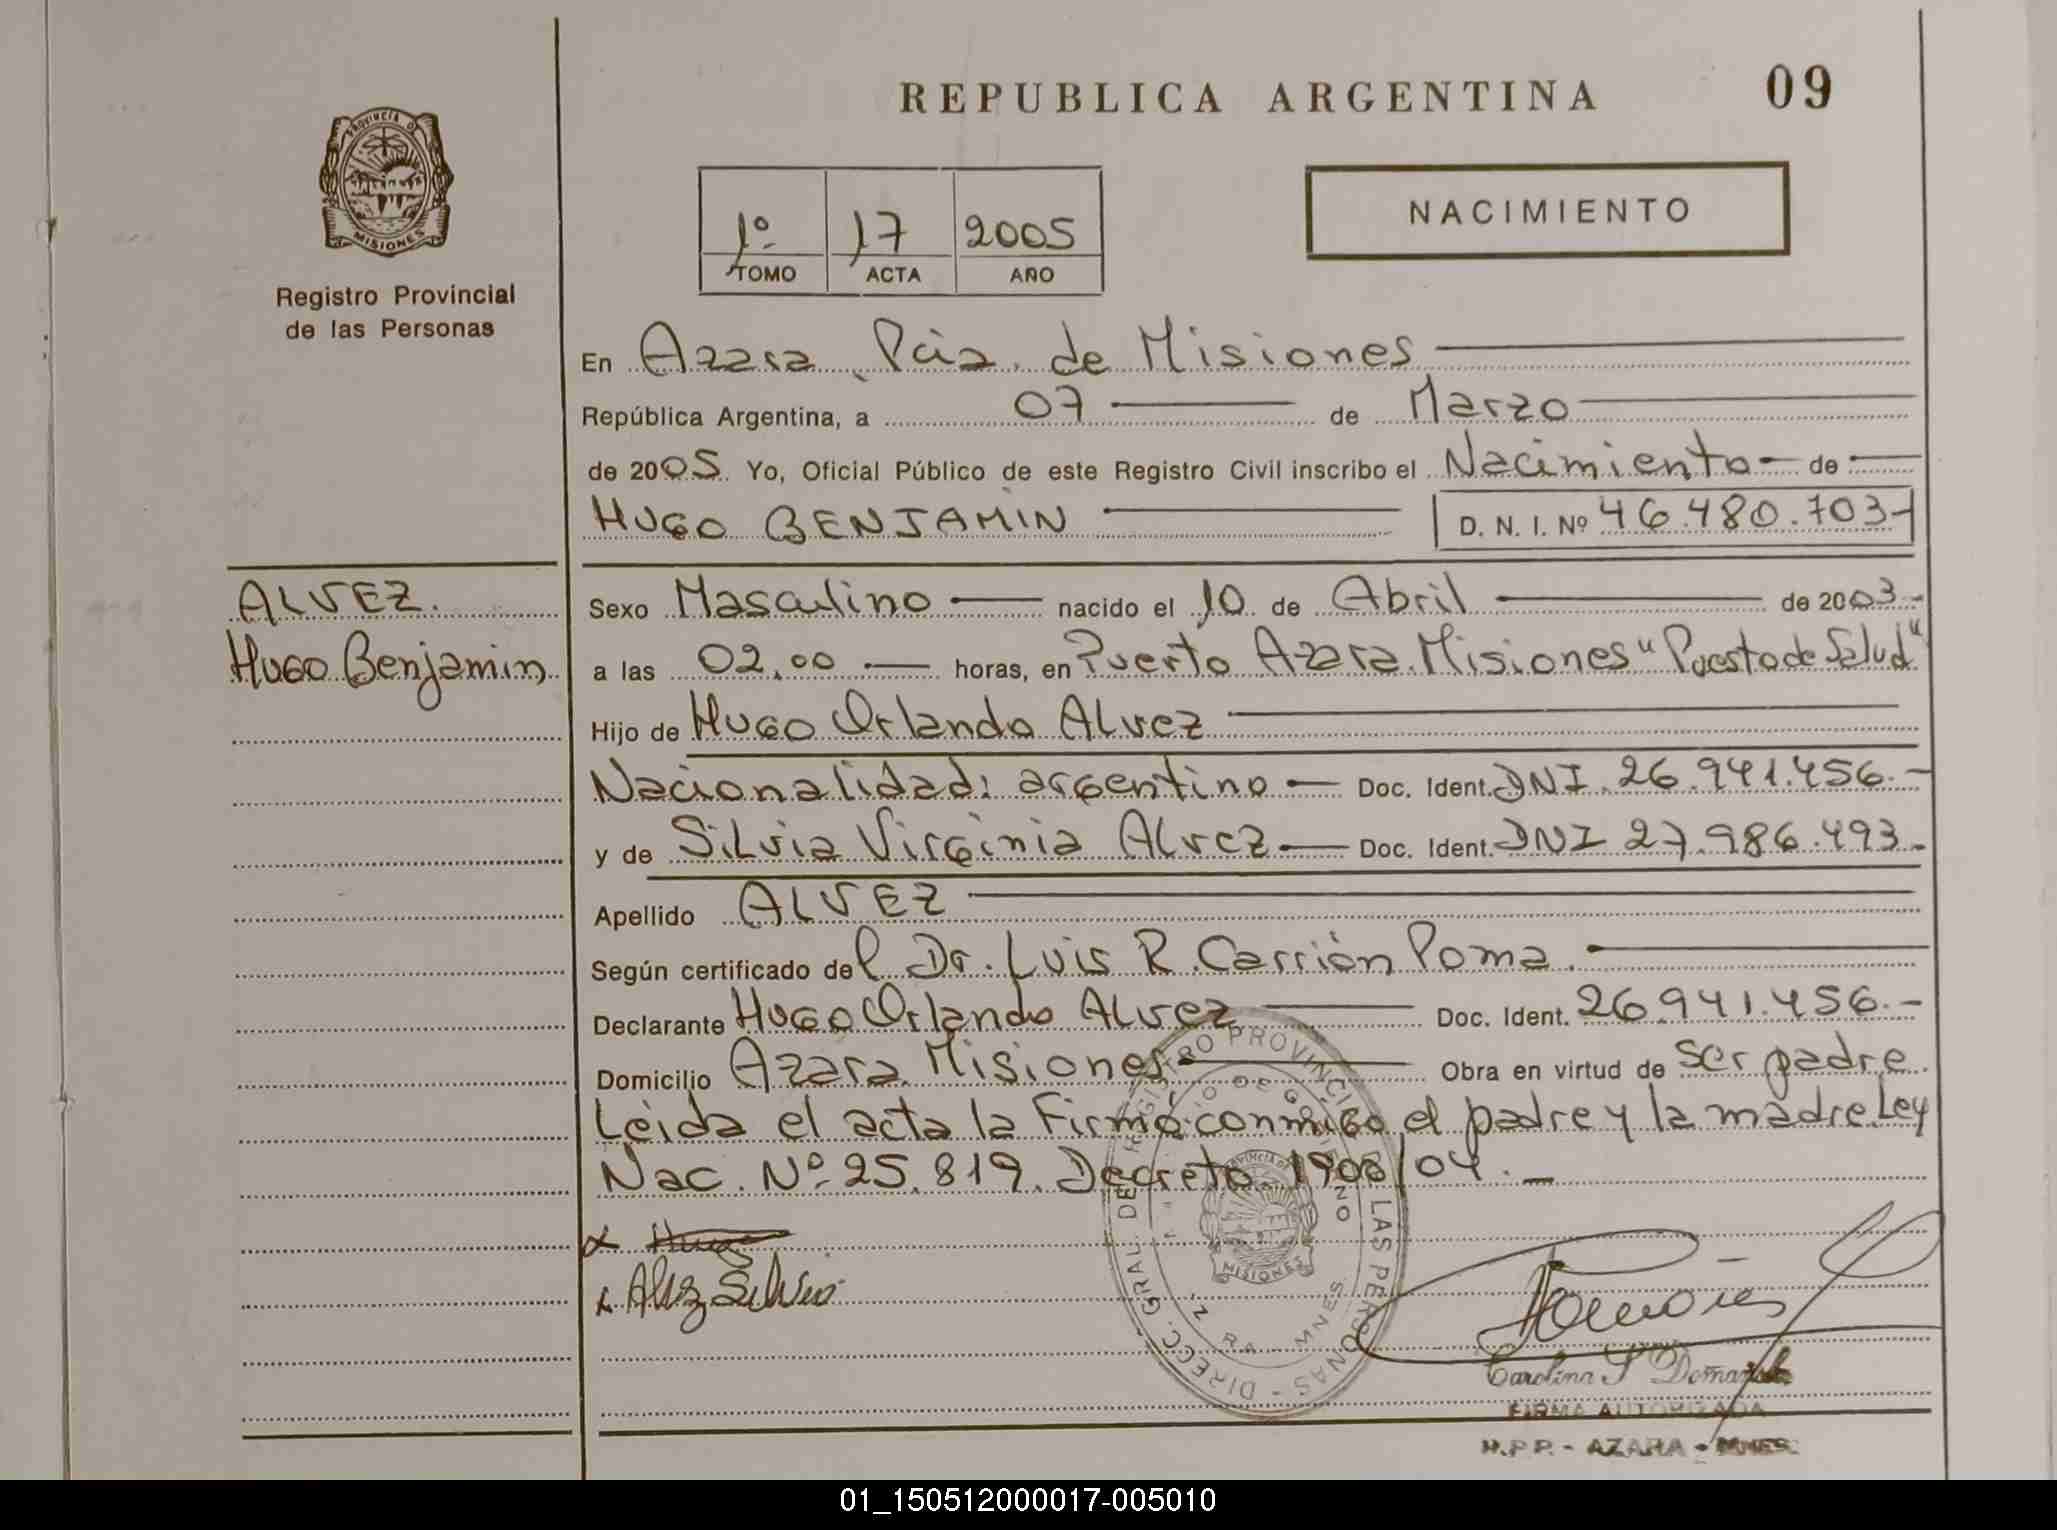 REPUBLICA ARGENTINA
09
PROVINCIA DE
MISIONES
Registro Provincial
de las Personas
1º 17 2005
TOMO ACTA AÑO
NACIMIENTO
En Azara, Pcia. de Misiones
República Argentina, a 07 de Marzo
de 2005. Yo, Oficial Público de este Registro Civil inscribo el Nacimiento de
HUGO BENJAMIN D. N. I. Nº 46.480.703-
ALVEZ.
Hugo Benjamin
Sexo Masculino nacido el 10 de Abril de 2003.-
a las 02,00 horas, en Puerto Azara. Misiones "Puesto de Salud"
Hijo de Hugo Orlando Alvez
Nacionalidad: argentino Doc. Ident. DNI. 26.941.456.-
y de Silvia Virginia Alvez Doc. Ident. DNI 27.986.493.-
Apellido ALVEZ
Según certificado del Dr. Luis R. Carrión Poma.
Declarante Hugo Orlando Alvez Doc. Ident. 26.941.456.-
Domicilio Azara Misiones Obra en virtud de ser padre.
Leida el acta la Firmó conmigo el padre y la madre. Ley
Nac. Nº 25.819. Decreto 1900/04.-
x Hugo
x Alvez Silvia
DIRECC. GRAL. DE REGISTRO PROVINCIAL DE LAS PERSONAS
MISIONES
MNES
Carolina S
FIRMA AUTORIZADA
R.P.P. - AZARA - MNES.
01_150512000017-005010